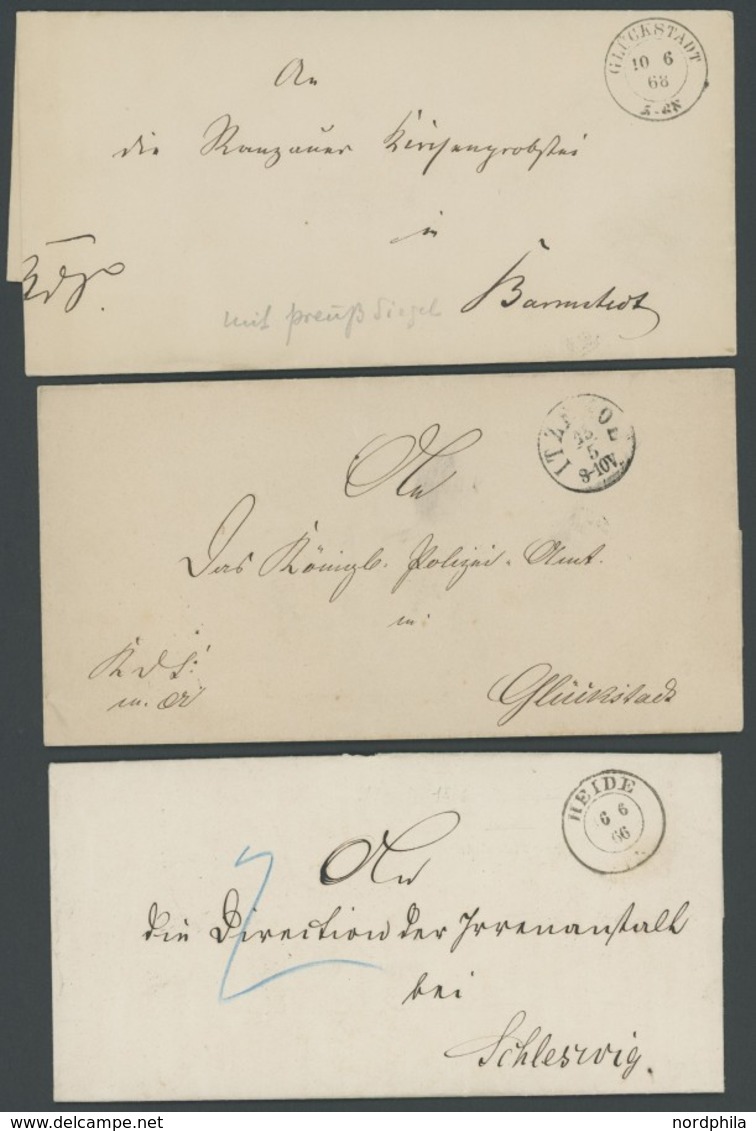 GLÜCKSTADT
10 6
68
5-6N
An
die Ranzauer Kirchenprobstei
in
Barmstedt
mit preuß Siegel
ITZEHOE
5
8-10V.
An
Das Königl. Polizei-Amt.
in
K. d. S.
Glückstadt
HEIDE
6 6
66
An
2
die Direction der Irrenanstalt
bei
Schleswig.
www.delcampe.net
nordphila